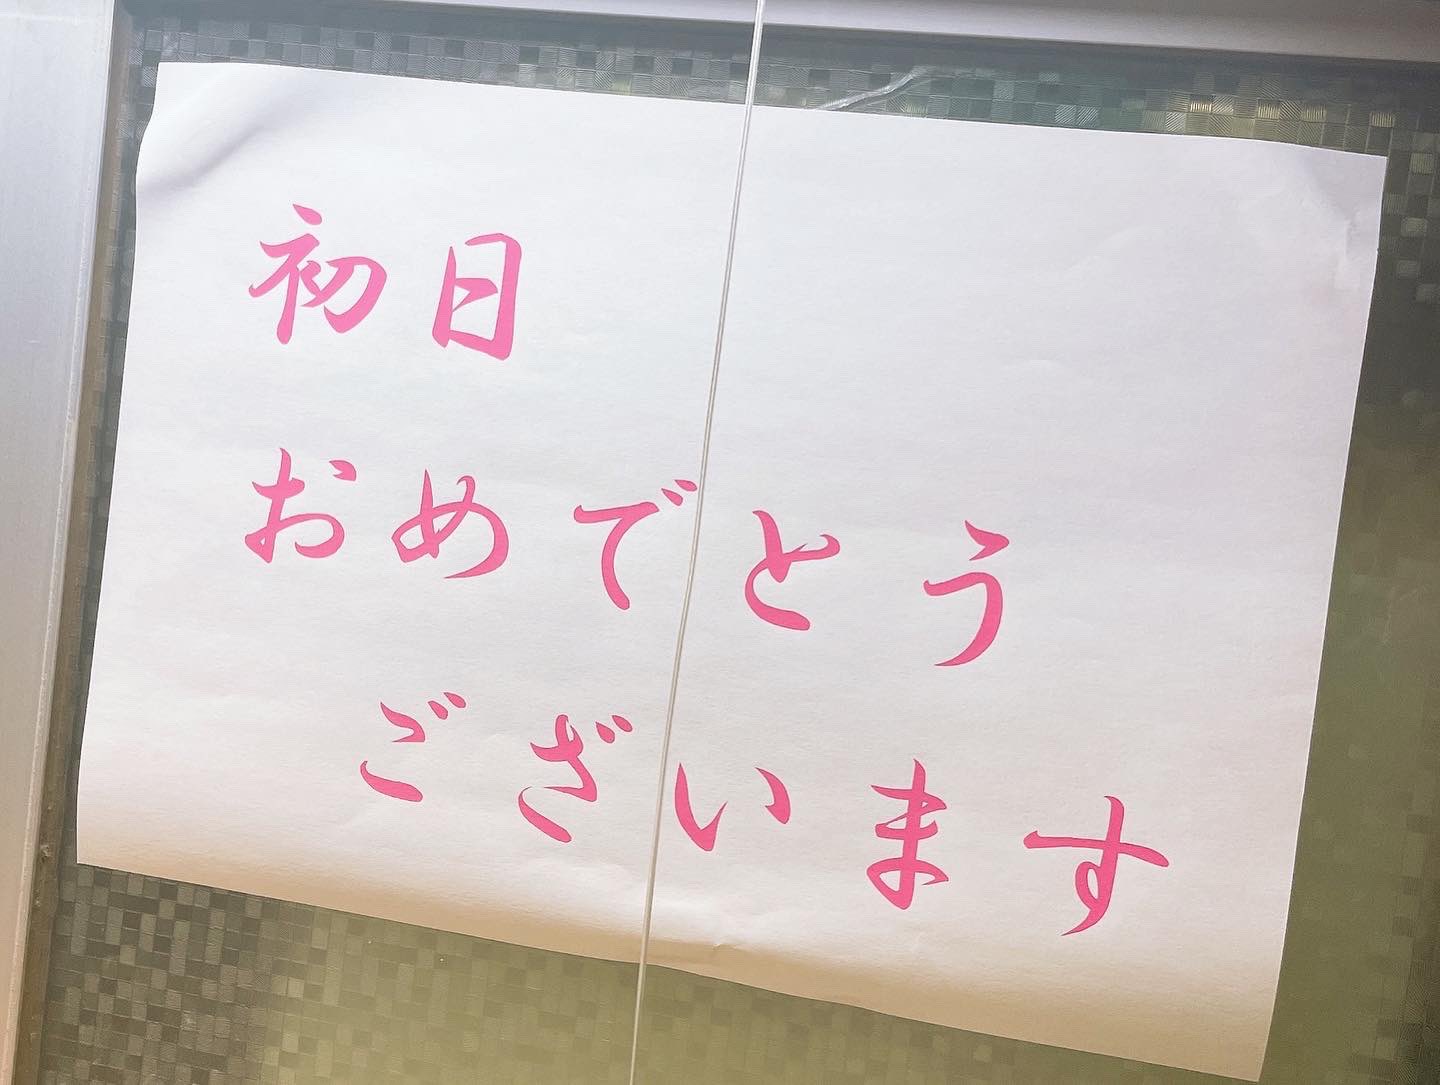 初日
おめでとう
ございます